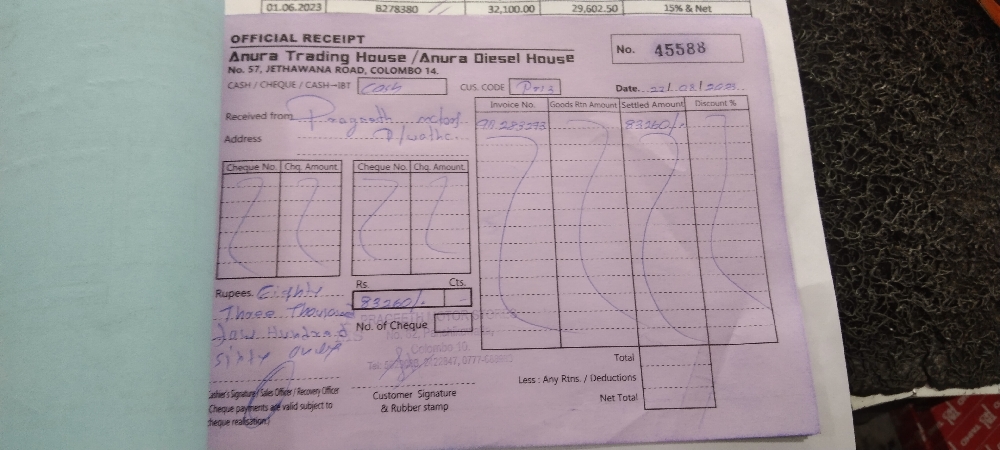 01.06.2023 B278380 32,100.00 29,602.50 15% & Net
OFFICIAL RECEIPT
Anura Trading House / Anura Diesel House
No. 57, JETHAWANA ROAD, COLOMBO 14.
No. 45588
CASH / CHEQUE / CASH-IBT Cash
CUS. CODE
Date. 22/08/2023
Received from
Address
Invoice No. Goods Rtn Amount Settled Amount Discount %
83260/-
Cheque No. Chq. Amount. Cheque No. Chq. Amount.
Rupees. Eighty
Three Thousand
Hundred
Sixty only
Rs. Cts.
83260/- -
No. of Cheque
Colombo 10.
Total
Less : Any Rtns. / Deductions
Net Total
Cashier's Signature / Sales Officer / Recovery Officer
Cheque payments are valid subject to
cheque realisation.)
Customer Signature
& Rubber stamp